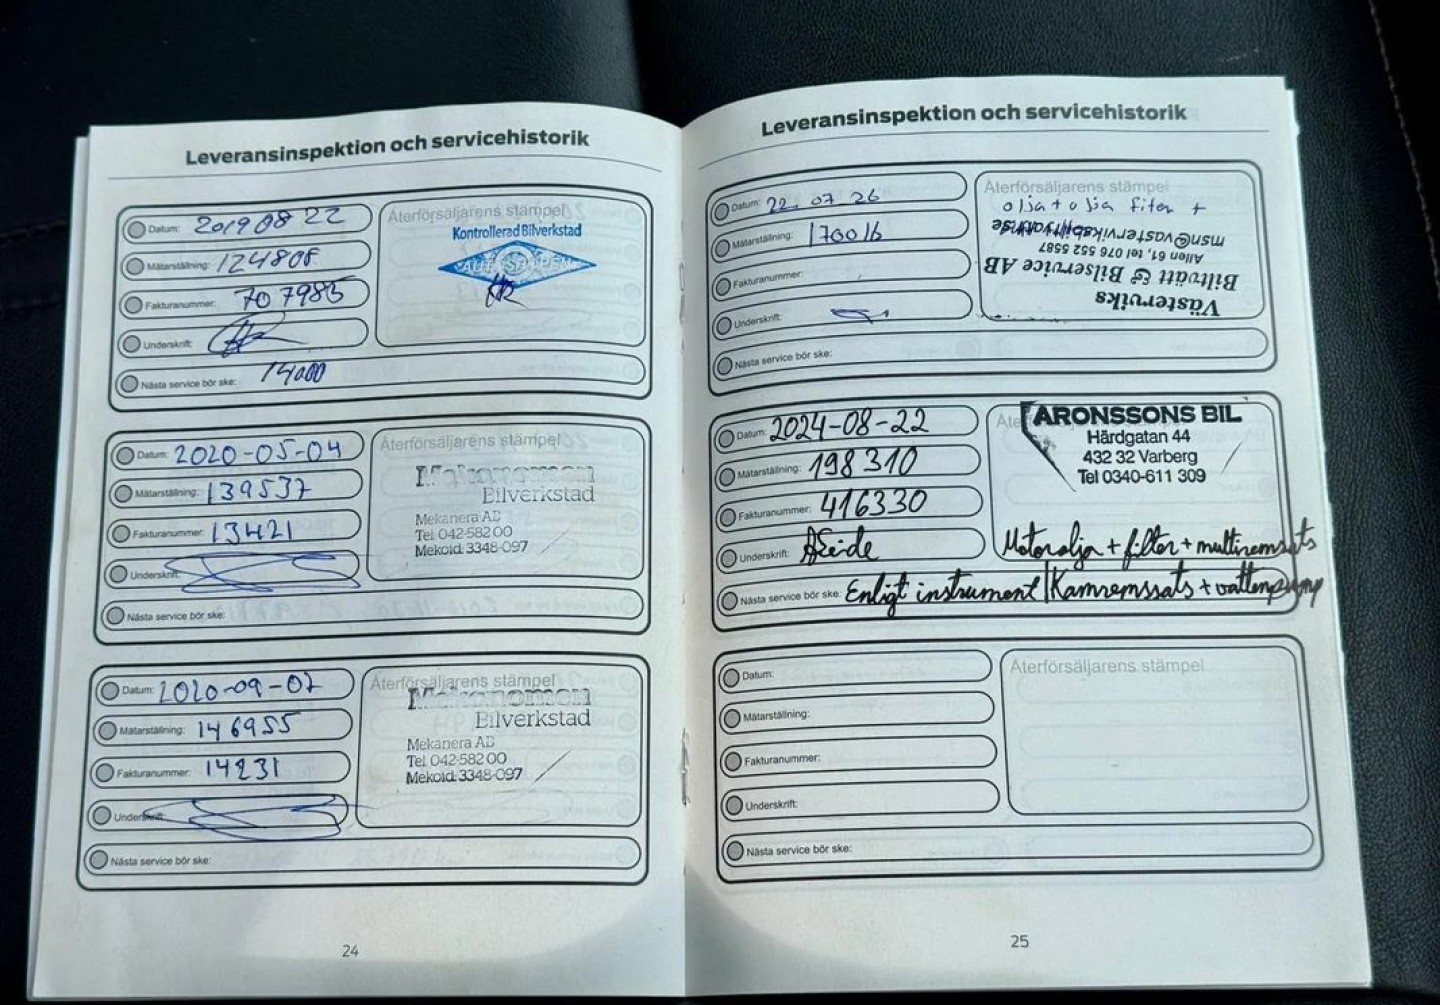 Leveransinspektion och servicehistorik
Datum: 2019 08 22
Mätarställning: 124808
Fakturanummer: 707985
Underskrift:
Nästa service bör ske: 14000
Återförsäljarens stämpel
Kontrollerad Bilverkstad
Datum: 2020-05-04
Mätarställning: 139537
Fakturanummer: 13421
Underskrift:
Nästa service bör ske:
Återförsäljarens stämpel
Mekonomen
Bilverkstad
Mekanera AB
Tel. 042-582 00
Mekoid: 3348-097
Datum: 2020-09-07
Mätarställning: 146955
Fakturanummer: 14231
Underskrift:
Nästa service bör ske:
Återförsäljarens stämpel
Mekonomen
Bilverkstad
Mekanera AB
Tel. 042-582 00
Mekoid: 3348-097
24
Leveransinspektion och servicehistorik
Datum: 22 07 26
Mätarställning: 170016
Fakturanummer:
Underskrift:
Nästa service bör ske:
Återförsäljarens stämpel
olja + olja filter +
Västerviks
Biltvätt & Bilservice AB
Allen 61, tel 076 552 5587
Datum: 2024-08-22
Mätarställning: 198310
Fakturanummer: 416330
Underskrift:
Nästa service bör ske: Enligt instrument
ARONSSONS BIL
Härdgatan 44
432 32 Varberg
Tel 0340-611 309
Motorolja + filter + multiremsats
Kamremssats + vattenpump
Datum:
Mätarställning:
Fakturanummer:
Underskrift:
Nästa service bör ske:
Återförsäljarens stämpel
25